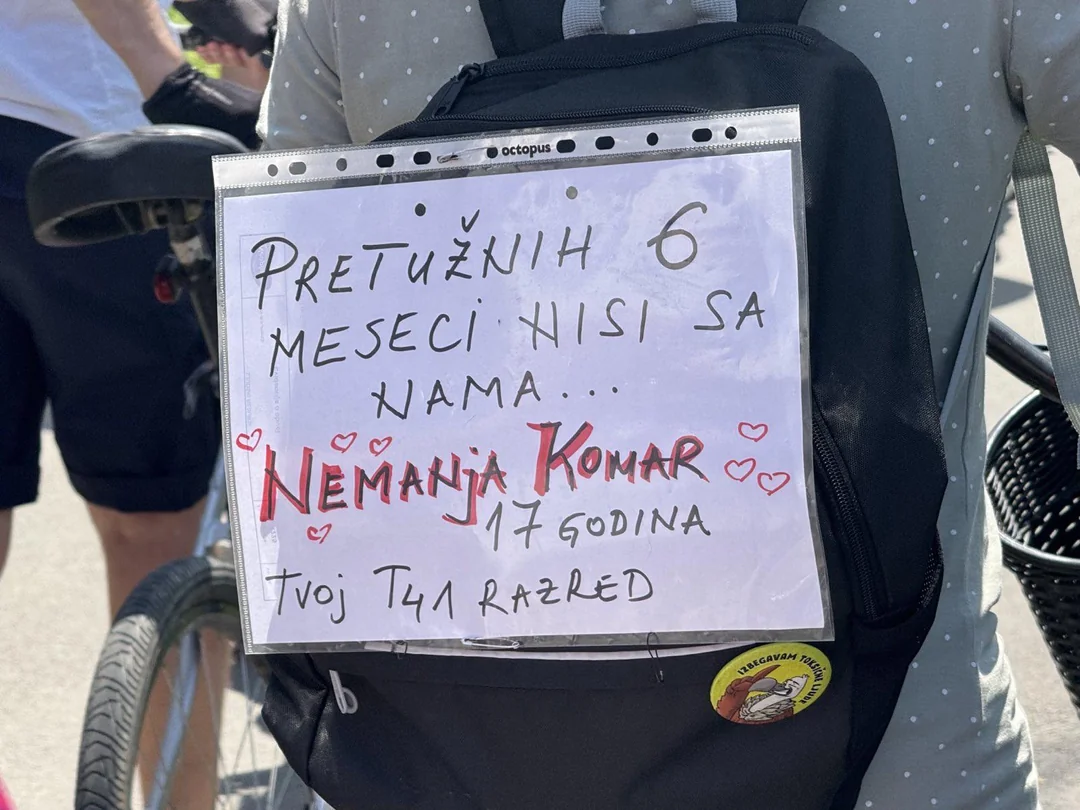 octopus
PRETUŽNIH 6
MESECI NISI SA
NAMA...
NEMANJA KOMAR
17 GODINA
TVOJ T41 RAZRED
IZBEGAVAM TOKSIČNE LJUDE